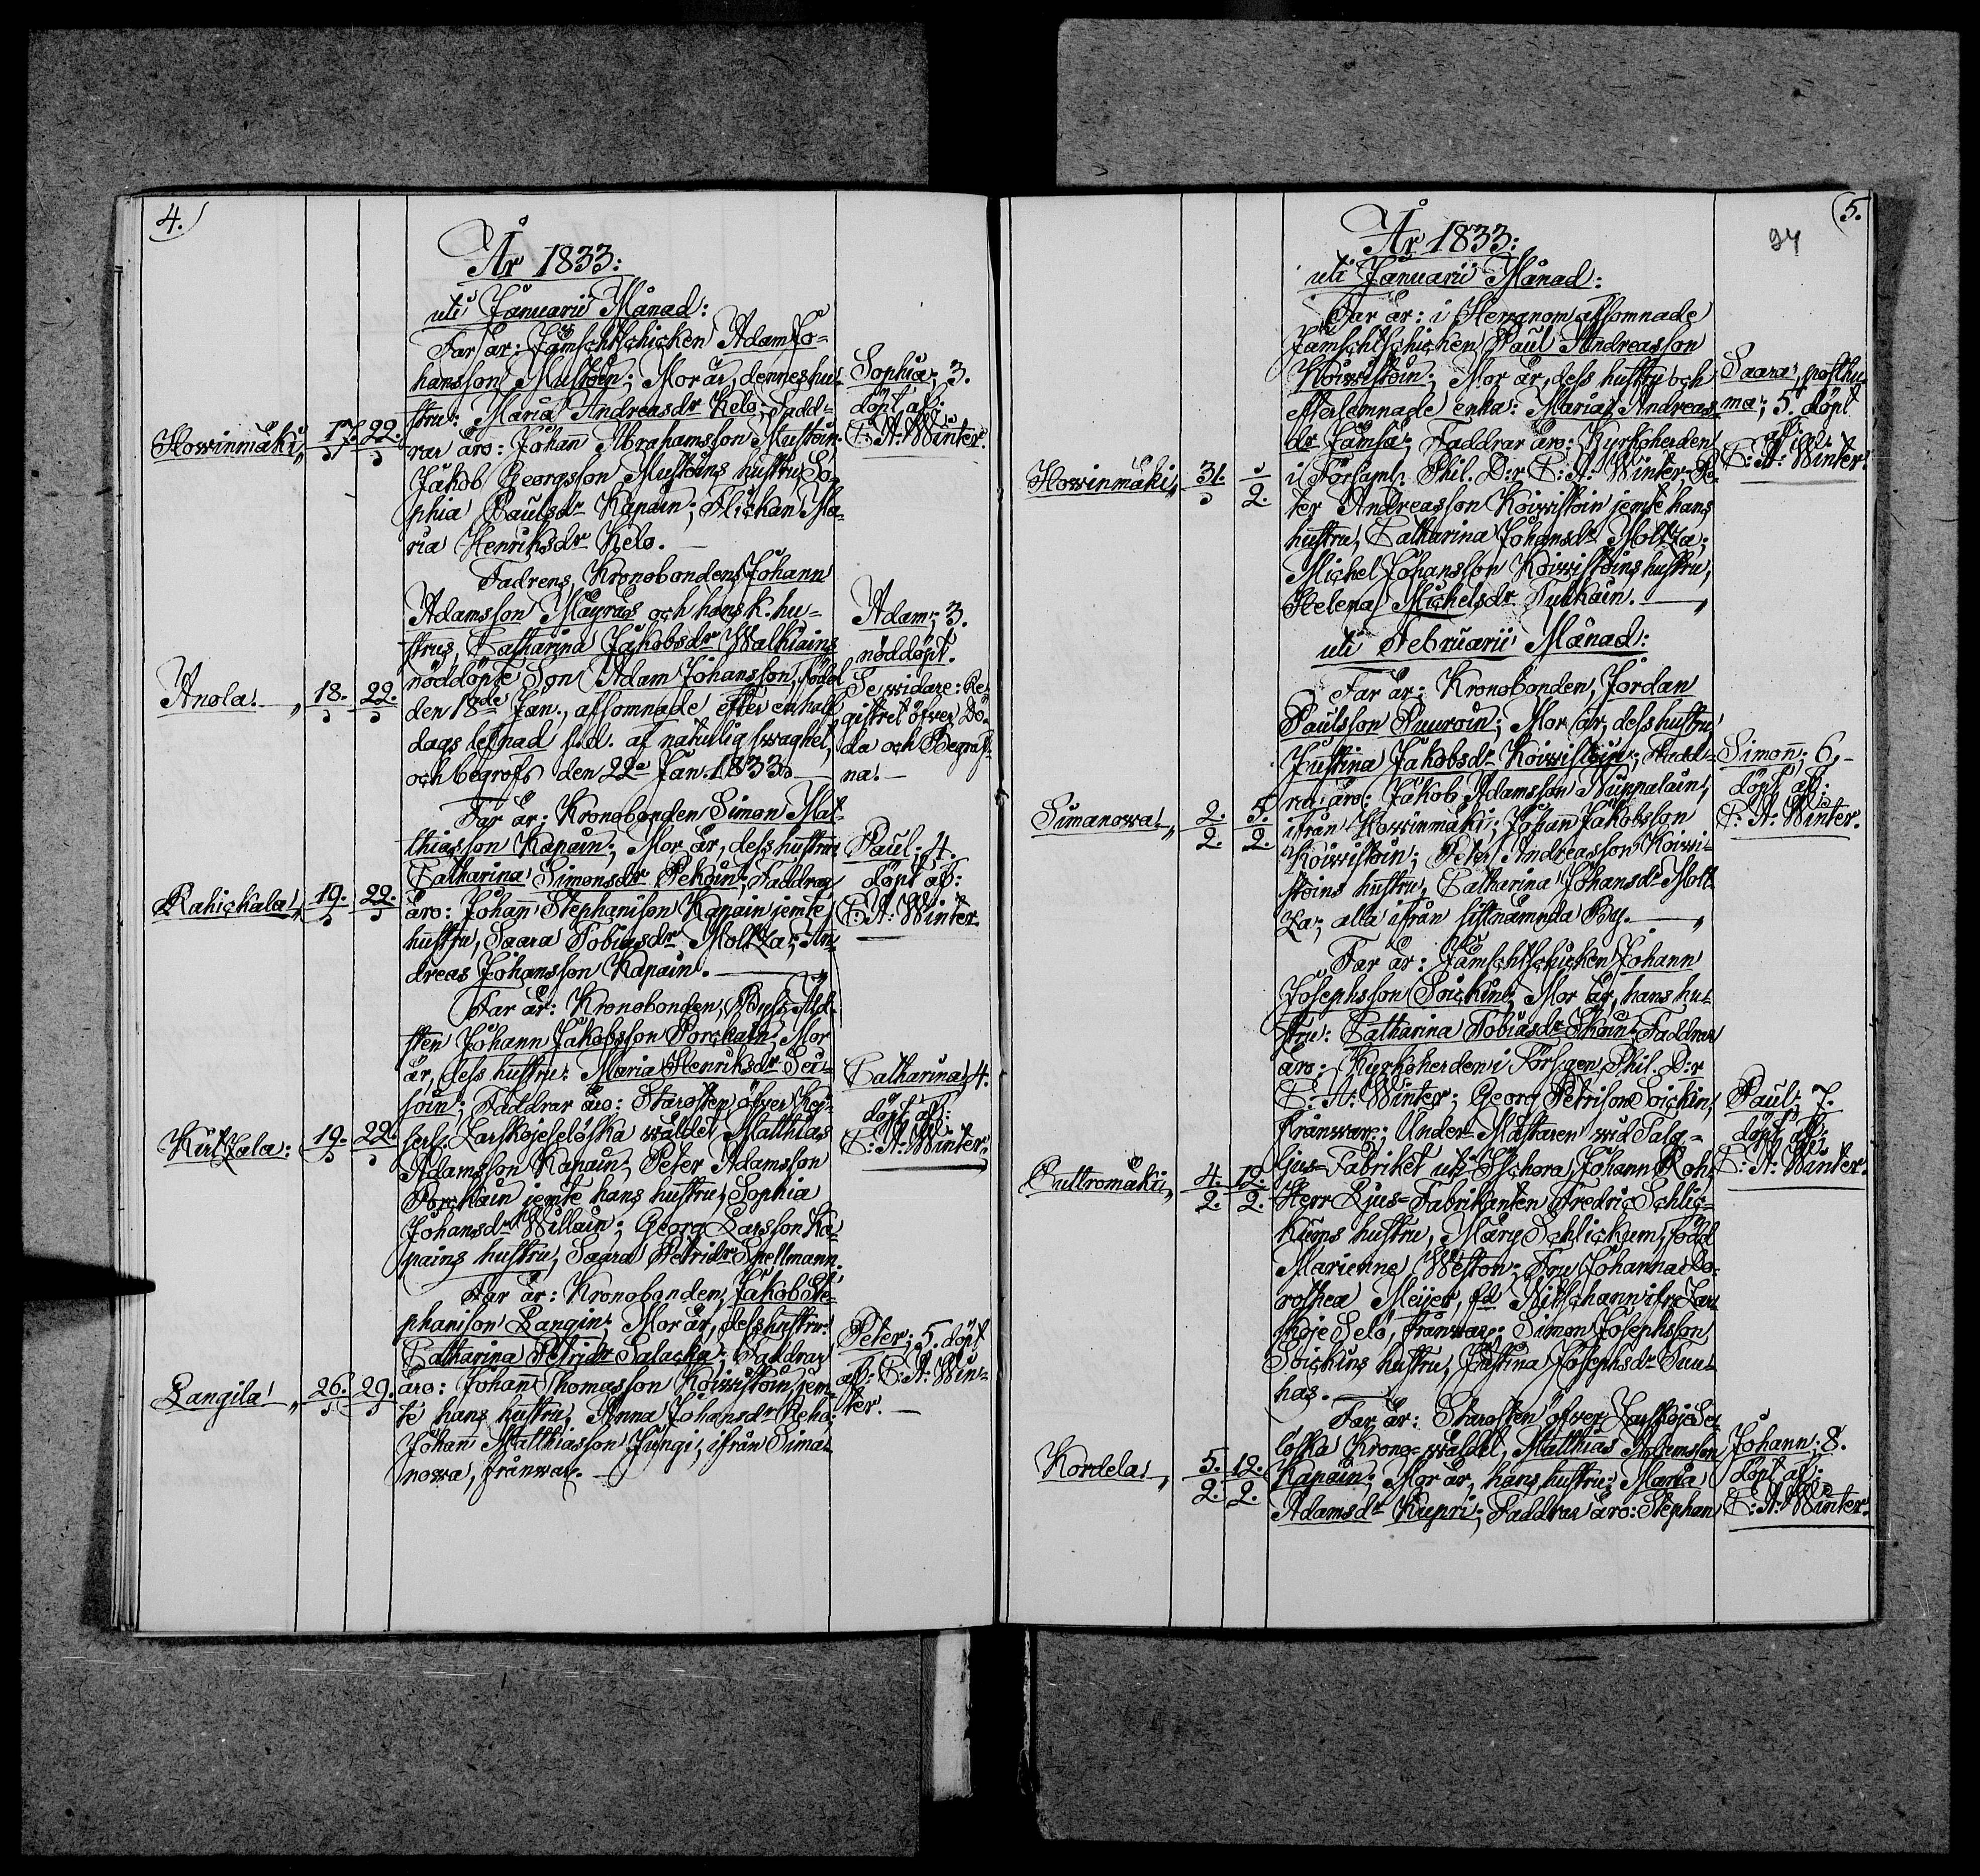 4.
År 1833:
uti Januarii Månad:
Howinmäki, 17. 22.
Far är: Jämschtschicken Adam Jo-
hansson Mustoin; Mor är, dennes hu-
stru: Maria Andreasdr Kelo; Fadd-
rar äro: Johan Abrahamsson Mustoin
Jakob Georgsson Mustoins hustru So-
phia Paulsdr Kapain; Flickan Ma-
ria Henriksdr Kelo.
Sophia; 3.
döpt af:
C: A: Winter.
Anola! 18. 22.
Fadrens, Kronobondens Johann
Adamsson Mäyräs och hans k. hu-
strus, Catharina Jakobsdr Walkiains
nöddöpte Son Adam Johansson, född
den 18de Jan., afsomnade efter en half
dags lefnad s. d. af naturlig swaghet,
och begrofs den 22a Jan. 1833.
Adam; 3.
nöddöpt.
Se widare: Re-
gistret öfver Dö-
da och Begraf-
na!
Rahickala! 19. 22.
Far är: Kronobonden Simon Mat-
thiasson Kapain; Mor är, dess hustru
Catharina Simonsdr Pekoin; Faddrar
äro: Johann Stephanison Kapain jemte
hustru, Saara Tobiasdr Moltza; An-
dreas Johansson Kapain.
Paul; 4.
döpt af:
C: A: Winter.
Kirtzala: 19. 22.
Far är: Kronobonden, By-Äld-
sten Johann Jakobsson Porckain; Mor
är, dess hustru: Maria Henriksdr Sui-
join; Faddrar äro: Starosten öfver Kej-
serl. Zarskojeselöska wäldet Matthias
Adamsson Kapain; Peter Adamsson
Porckain jemte hans hustru, Sophia
Johansdr Willain; Georg Larsson Ka-
pains hustru, Saara Petridr Snellmann.
Catharina; 4.
döpt af:
C: A: Winter.
Langila! 26. 29.
Far är: Kronobonden, Jakob Ste-
phanison Langin; Mor är, dess hustru:
Catharina Petridr Salacka; Faddrar
äro: Johann Thomasson Koiwistoin, jem-
te hans hustru, Anna Johansdr Reko;
Johan Matthiasson Jungi, ifrån Sima-
nowa, frånwar.
Peter; 5. döpt
af: C: A: Win-
ter.
5.
94
År 1833:
uti Januarii Månad:
Howinmäki, 31. 2.
Far är: i Herranom afsomnade
Jämschtschicken Paul Andreasson
Koiwistoin; Mor är, dess hustru och
efterlemnade enka: Maria Andreas-
dr Jämsä; Faddrar äro: Kyrkoherden
i Församl. Phil. D:r C: A: Winter; Pe-
ter Andreasson Koiwistoin jemte hans
hustru, Catharina Johansdr Moltza;
Michel Johansson Koiwistoins hustru,
Helena Michelsdr Tuckain.
Saara, posthu-
ma; 5. döpt
af:
C: A: Winter.
uti Februarii Månad:
Simanowa! 2. 2. 5. 2.
Far är: Kronobonden, Jordan
Paulsson Puuroin; Mor är, dess hustru
Justina Jakobsdr Koiwistoin; Fadd-
rar äro: Jakob Adamsson Nuppalain,
ifrån Howinmäki; Johann Jakobsson
Koiwistoin; Peter Andreasson Koiwi-
stoins hustru, Catharina Johansdr Molt-
za; alla ifrån sistnämnda By.
Simon; 6.
döpt af:
C: A: Winter.
Puttromäki, 4. 2. 12. 2.
Far är: Jämschtschicken Johann
Josephsson Soickin; Mor är, hans hu-
stru: Catharina Tobiasdr Ihain; Faddrar
äro: Kyrkoherden i Förs:gen, Phil. D:r
C: A: Winter; Georg Petrison Soickin,
frånwar.; Under-Mästaren wid Talg-
ljus-Fabriket uti Ischora, Johann Roh,
Herr Ljus-Fabrikanten Fredric Schlic-
kums hustru, Mary Schlickum, född
Marienne Weston; Fru Johanna Do-
rothea Meijer, fd Nitschann ifr. Zar-
skoje Selo, frånwar.; Simon Josephsson
Soickins hustru, Justina Josephsdr Tuu-
has.
Paul; 7.
döpt af:
C: A: Winter.
Kordela! 5. 2. 12. 2.
Far är: Starosten öfver Zarskoje Se-
löska Krono-wäldet, Matthias Adamsson
Kapain; Mor är, hans hustru: Maria
Adamsdr Kupri; Faddrar äro: Stephan
Johann; 8.
döpt af:
C: A: Winter.